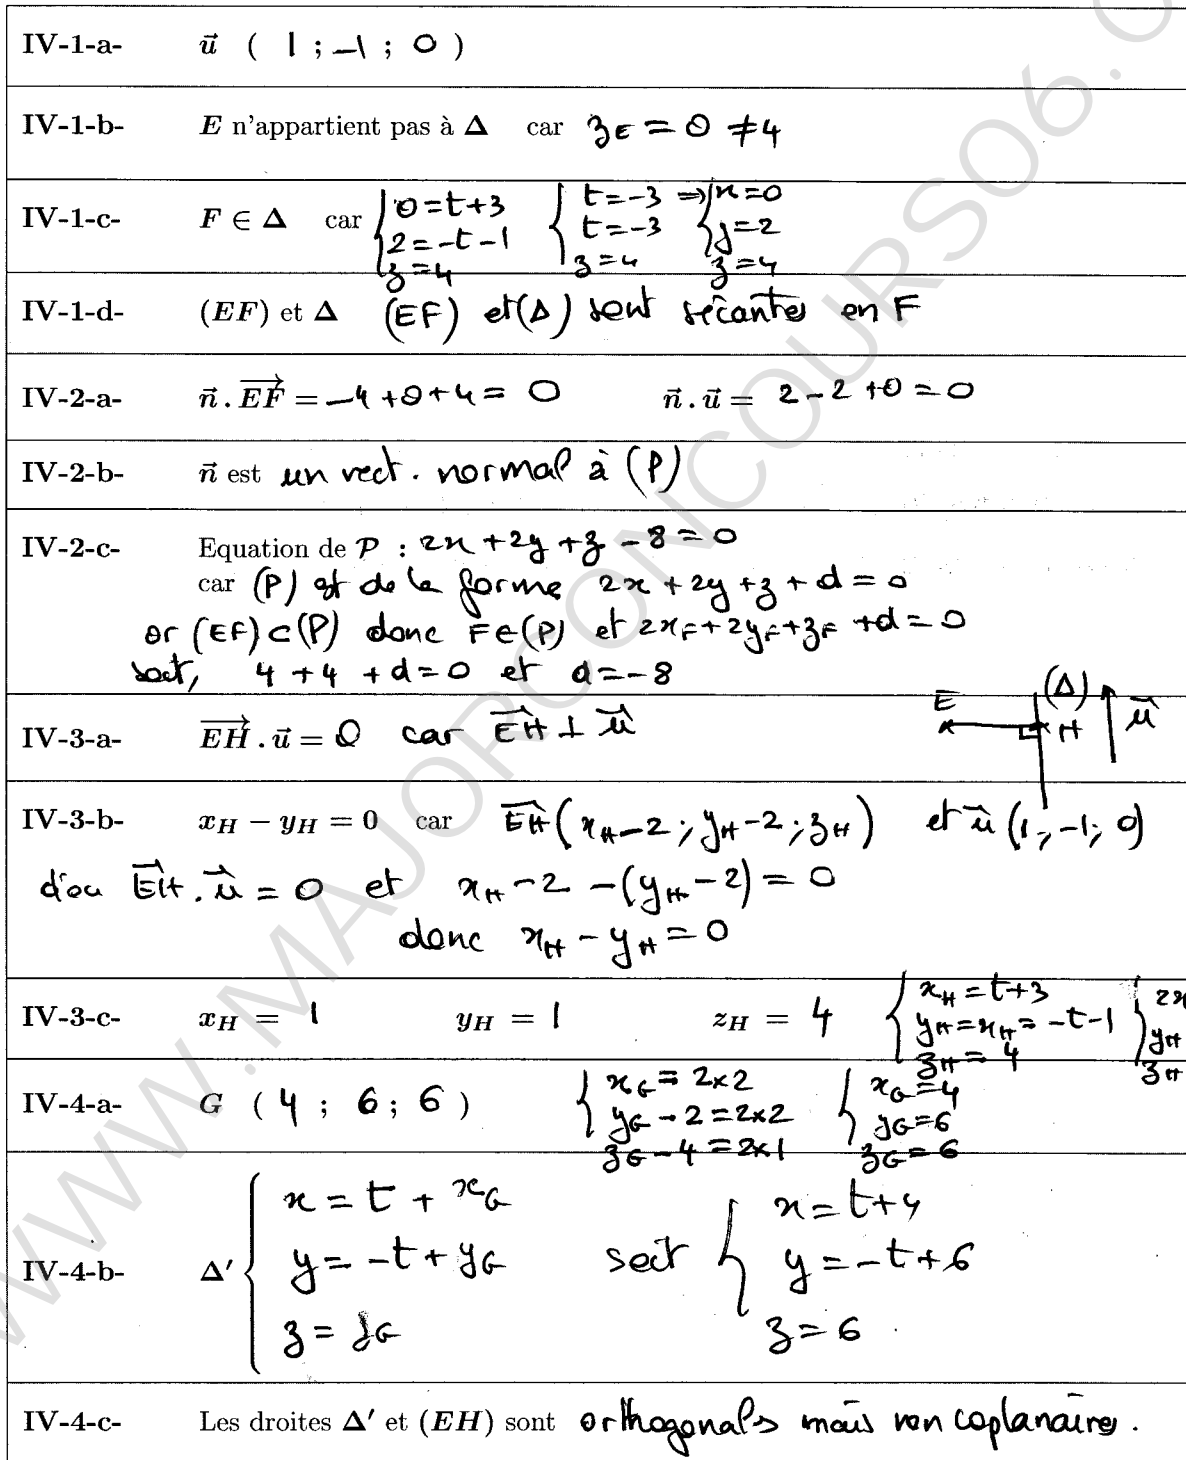 IV-1-a- u⃗ ( 1 ; -1 ; 0 )
IV-1-b- E n'appartient pas à Δ car z_E = 0 ≠ 4
IV-1-c- F ∈ Δ car { 0 = t+3 { t = -3 ⇒ { x = 0
2 = -t-1 t = -3 y = 2
z = 4 z = 4 z = 4
IV-1-d- (EF) et Δ (EF) et (Δ) sont sécantes en F
IV-2-a- n⃗ . EF⃗ = -4 + 0 + 4 = 0 n⃗ . u⃗ = 2 - 2 + 0 = 0
IV-2-b- n⃗ est un vect. normal à (P)
IV-2-c- Equation de P : 2x + 2y + z - 8 = 0
car (P) est de la forme 2x + 2y + z + d = 0
or (EF) ⊂ (P) donc F ∈ (P) et 2x_F + 2y_F + z_F + d = 0
soit, 4 + 4 + d = 0 et d = -8
IV-3-a- EH⃗ . u⃗ = 0 car EH⃗ ⊥ u⃗
E (Δ) H u⃗
IV-3-b- x_H - y_H = 0 car EH⃗ (x_H - 2 ; y_H - 2 ; z_H) et u⃗ (1 ; -1 ; 0)
d'où EH⃗ . u⃗ = 0 et x_H - 2 - (y_H - 2) = 0
donc x_H - y_H = 0
IV-3-c- x_H = 1 y_H = 1 z_H = 4 { x_H = t+3 { 2x
y_H = x_H = -t-1 y_H
z_H = 4 z_H
IV-4-a- G ( 4 ; 6 ; 6 ) { x_G = 2×2 { x_G = 4
y_G - 2 = 2×2 y_G = 6
z_G - 4 = 2×1 z_G = 6
IV-4-b- Δ′ { x = t + x_G soit { x = t+4
y = -t + y_G y = -t+6
z = z_G z = 6
IV-4-c- Les droites Δ′ et (EH) sont orthogonales mais non coplanaires.
WWW.MAJORCONCOURS06.C